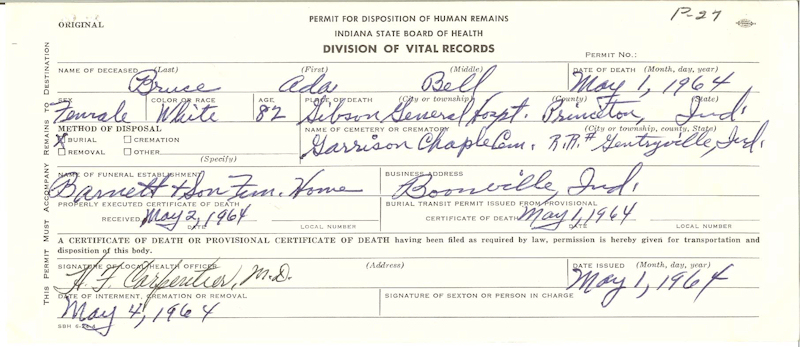 ORIGINAL
PERMIT FOR DISPOSITION OF HUMAN REMAINS
P-27
INDIANA STATE BOARD OF HEALTH
DIVISION OF VITAL RECORDS
PERMIT NO.:
THIS PERMIT MUST ACCOMPANY REMAINS TO DESTINATION
NAME OF DECEASED (Last) (First) (Middle) DATE OF DEATH (Month, day, year)
Bruce Ada Bell May 1, 1964
SEX COLOR OR RACE AGE PLACE OF DEATH (City or township) (County) (State)
Female White 82 Gibson General Hospt. Princeton, Ind.
METHOD OF DISPOSAL NAME OF CEMETERY OR CREMATORY (City or township, county, State)
X BURIAL CREMATION Garrison Chaple Cem. R.R.# Gentryville, Ind.
REMOVAL OTHER
(Specify)
NAME OF FUNERAL ESTABLISHMENT BUSINESS ADDRESS
Barnett + Son Fun. Home Boonville, Ind.
PROPERLY EXECUTED CERTIFICATE OF DEATH BURIAL TRANSIT PERMIT ISSUED FROM PROVISIONAL
RECEIVED May 2, 1964 CERTIFICATE OF DEATH May 1, 1964
DATE LOCAL NUMBER DATE LOCAL NUMBER
A CERTIFICATE OF DEATH OR PROVISIONAL CERTIFICATE OF DEATH having been filed as required by law, permission is hereby given for transportation and
disposition of this body.
SIGNATURE OF LOCAL HEALTH OFFICER (Address) DATE ISSUED (Month, day, year)
H F Carpentier, M.D. May 1, 1964
DATE OF INTERMENT, CREMATION OR REMOVAL SIGNATURE OF SEXTON OR PERSON IN CHARGE
May 4, 1964